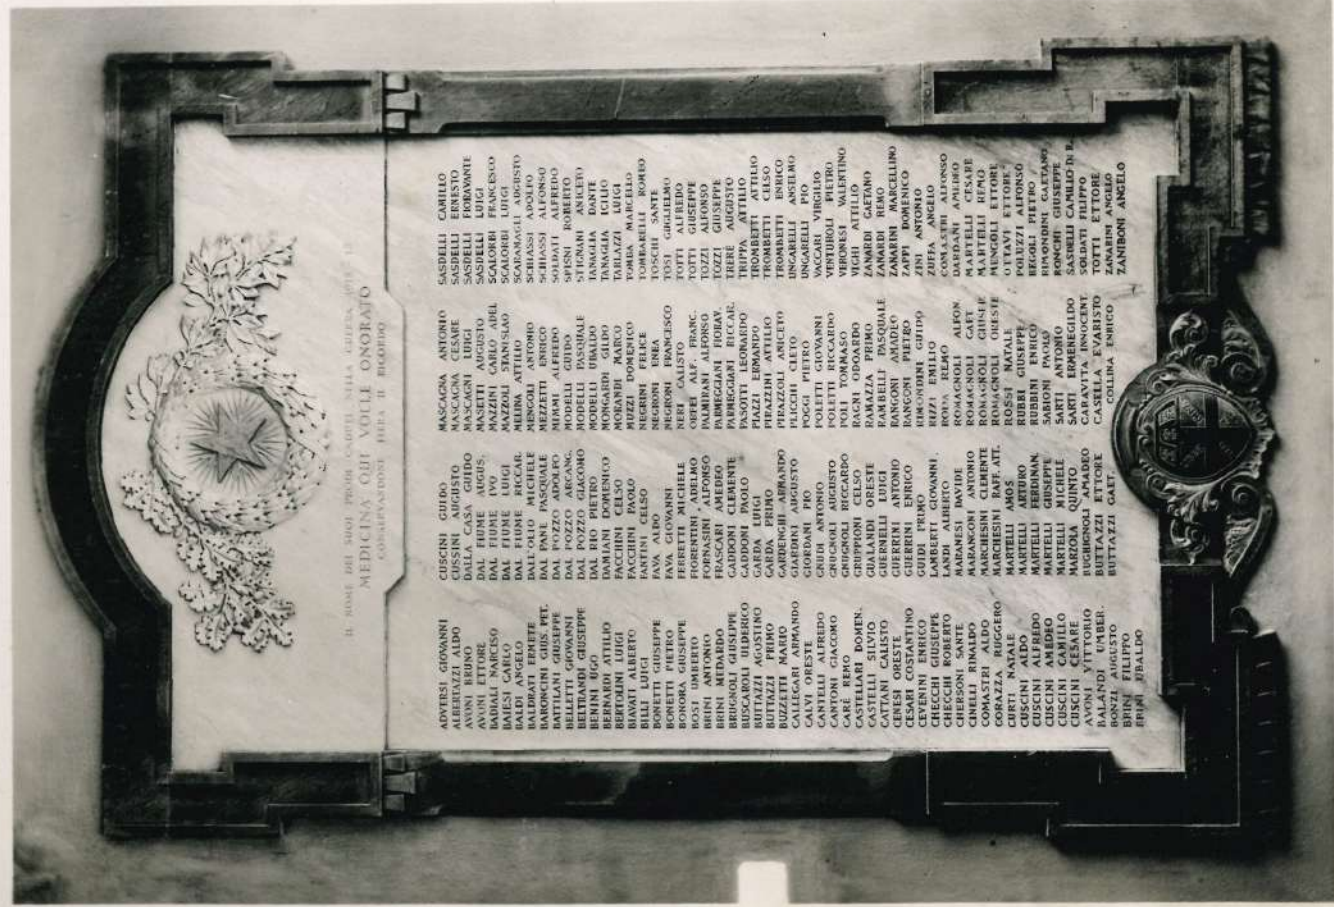 IL NOME DEI SUOI PRODI CADUTI ALLA GUERRA
MEDICINA QUI VOLLE ONORATO
CONSERVANDONE FIERA IL RICORDO
ADVERSI GIOVANNI
ALBERTAZZI ALDO
AVONI BRUNO
AVONI ETTORE
BADIALI NARCISO
BAIESI CARLO
BALDI ANGELO
BALDRATI ERMETE
BARONCINI GIUS. PET.
BATTILANI GIUSEPPE
BELLETTI GIOVANNI
BELTRANDI GIUSEPPE
BENINI UGO
BERNARDI ATTILIO
BERTOLINI LUIGI
BIAVATI ALBERTO
BILLI LUIGI
BONETTI GIUSEPPE
BONETTI PIETRO
BONORA GIUSEPPE
BOSI UMBERTO
BRINI ANTONIO
BRINI MEDARDO
BRUGNOLI GIUSEPPE
BUSCAROLI ULDERICO
BUTTAZZI AGOSTINO
BUTTAZZI PRIMO
BUZZETTI MARIO
CALLEGARI ARMANDO
CALVI ORESTE
CANTELLI ALFREDO
CANTONI GIACOMO
CARÈ REMO
CASTELLARI DOMEN.
CASTELLI SILVIO
CATTANI CALISTO
CENESI ORESTE
CESARI COSTANTINO
CEVENINI ENRICO
CHECCHI GIUSEPPE
CHECCHI ROBERTO
CHERSONI SANTE
CINELLI RINALDO
COMASTRI ALDO
CORAZZA RUGGERO
CURTI NATALE
CUSCINI ALDO
CUSCINI ALFREDO
CUSCINI AMEDEO
CUSCINI CAMILLO
CUSCINI CESARE
AVONI VITTORIO
BALANDI UMBER.
BONZI AUGUSTO
BRINI FILIPPO
BRINI UBALDO
CUSCINI GUIDO
CUSSINI AUGUSTO
DALLA CASA GUIDO
DAL FIUME AUGUS.
DAL FIUME IVO
DAL FIUME LUIGI
DAL FIUME RICCAR.
DALL'OLIO MICHELE
DAL PANE PASQUALE
DAL POZZO ADOLFO
DAL POZZO ARCANG.
DAL POZZO GIACOMO
DAL RIO PIETRO
DAMIANI DOMENICO
FACCHINI CELSO
FACCHINI PAOLO
FANTINI CELSO
FAVA ALDO
FAVA GIOVANNI
FERRETTI MICHELE
FIORENTINI ADELMO
FORNASINI ALFONSO
FRASCARI AMEDEO
GADDONI CLEMENTE
GADDONI PAOLO
GARDA LUIGI
GARDA PRIMO
GARDENGHI ARMANDO
GIARDINI AUGUSTO
GIORDANI PIO
GNUDI ANTONIO
GNUGNOLI AUGUSTO
GNUGNOLI RICCARDO
GRUPPIONI CELSO
GUALANDI ORESTE
GUERNELLI LUIGI
GUERRINI ANTONIO
GUERRINI ENRICO
GUIDI PRIMO
LAMBERTI GIOVANNI.
LANDI ALBERTO
MARANESI DAVIDE
MARANGONI ANTONIO
MARCHESINI CLEMENTE
MARCHESINI RAFF. ATT.
MARTELLI AMOS
MARTELLI ARTURO
MARTELLI FERDINAN.
MARTELLI GIUSEPPE
MARTELLI MICHELE
MARZOLA QUINTO
BUGHIGNOLI AMADEO
BUTTAZZI ETTORE
BUTTAZZI GAET.
MASCAGNA ANTONIO
MASCAGNA CESARE
MASCAGNI LUIGI
MASETTI AUGUSTO
MAZZINI CARLO ADEL
MAZZOLI STANISLAO
MELINA ATTILIO
MENGOLI ANTONIO
MEZZETTI ENRICO
MIMMI ALFREDO
MODELLI GUIDO
MODELLI PASQUALE
MODELLI UBALDO
MONGARDI GILDO
MORARDI MARCO
MUZZI DOMENICO
NEGRINI FELICE
NEGRONI ENEA
NEGRONI FRANCESCO
NERI CALISTO
OREFEI ALF. FRANC.
PALMIRANI ALFONSO
PARMEGGIANI FIORAV.
PARMEGGIANI RICCAR.
PASOTTI LEONARDO
PIAZZI ERMANDO
PIRAZZINI ATTILIO
PIRAZZOLI ANICETO
PLICCHI CLETO
POGGI PIETRO
POLETTI GIOVANNI
POLETTI RICCARDO
POLI TOMMASO
RAGNI ODOARDO
RAMAZZA PRIMO
RAMBELLI PASQUALE
RANGONI AMADEO
RANGONI PIETRO
RIMONDINI GUIDO
RIZZI EMILIO
RODA REMO
ROMAGNOLI ALFON.
ROMAGNOLI GAET
ROMAGNOLI GIUSEP.
ROMAGNOLI ORESTE
ROSSI NATALE
RUBBI GIUSEPPE
RUBBINI ENRICO
SABIONI PAOLO
SARTI ANTONIO
SARTI ERMENEGILDO
CARAVITA INNOCENT.
CASELLA EVARISTO
COLLINA ENRICO
SASDELLI CAMILLO
SASDELLI ERNESTO
SASDELLI FIORAVANTE
SASDELLI LUIGI
SCALORBI FRANCESCO
SCALORBI LUIGI
SCARAMAGLI AUGUSTO
SCHIASSI ADOLFO
SCHIASSI ALFONSO
SOLDATI ALFREDO
SPISNI ROBERTO
STIGNANI ANICETO
TANAGLIA DANTE
TANAGLIA ICILIO
TARLAZZI LUIGI
TOMBA MARCELLO
TOMBARELLI ROMEO
TOSCHI SANTE
TOSI GUGLIELMO
TOTTI ALFREDO
TOTTI GIUSEPPE
TOZZI ALFONSO
TOZZI GIUSEPPE
TRERÈ AUGUSTO
TRIPPA ATTILIO
TROMBETTI ATTILIO
TROMBETTI CELSO
TROMBETTI ENRICO
UNGARELLI ANSELMO
UNGARELLI PIO
VACCARI VIRGILIO
VENTUROLI PIETRO
VERONESI VALENTINO
VIGHI ATTILIO
ZANARDI GAETANO
ZANARDI REMO
ZANARINI MARCELLINO
ZAPPI DOMENICO
ZINI ANTONIO
ZUFFA ANGELO
COMASTRI ALFONSO
DARDANI AMEDEO
MARTELLI CESARE
MARTELLI REMO
MENGOLI ETTORE
OTTAVI ETTORE
POLUZZI ALFONSO
REGOLI PIETRO
RIMONDINI GAETANO
RONCHI GIUSEPPE
SASDELLI CAMILLO DI R.
SOLDATI FILIPPO
TOTTI ETTORE
ZANARINI ANGELO
ZANIBONI ANGELO